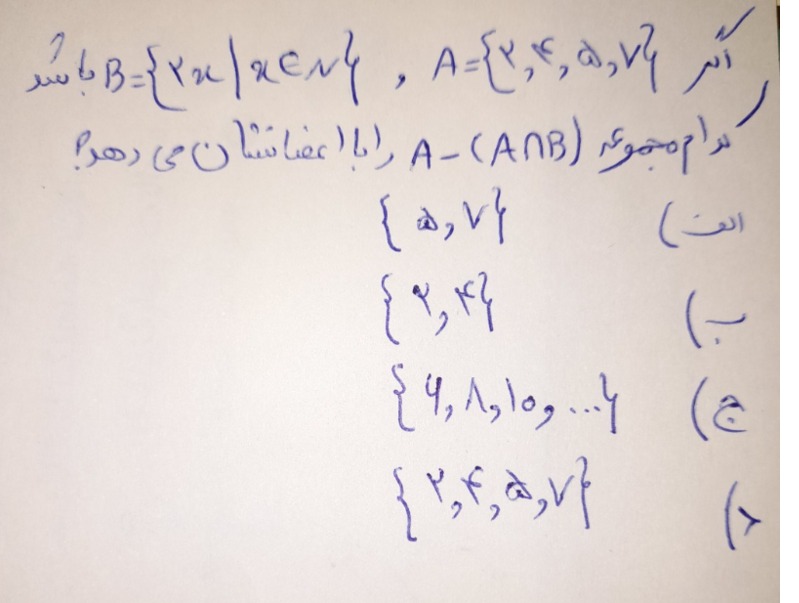 اگر A={۲,۴,۵,۷} , B={۲x|x∈N} باشد
کدام مجموعه A-(A∩B) را با اعضا نشان می دهد؟
الف) {۵,۷}
ب) {۲,۴}
ج) {۶,۸,۱۰,...}
د) {۲,۴,۵,۷}